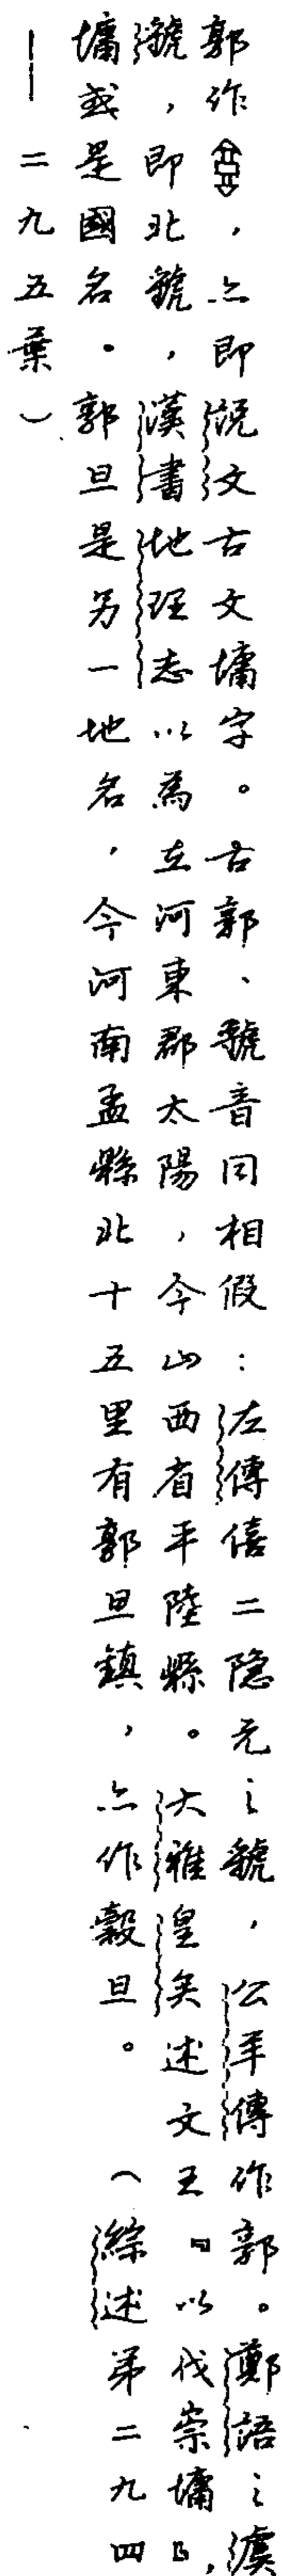 郭作，亦即説文古文墉字。古郭、虢音同相假：左傳僖二隐元之虢，公羊傳作郭。鄭語之虞
虢，即北虢，漢書地理志以為在河東郡太陽，今山西省平陸縣。大雅皇矣述文王『以伐崇墉』，
墉或是國名。郭旦是另一地名，今河南孟縣北十五里有郭旦鎮，亦作穀旦。（綜述第二九四
——二九五葉）